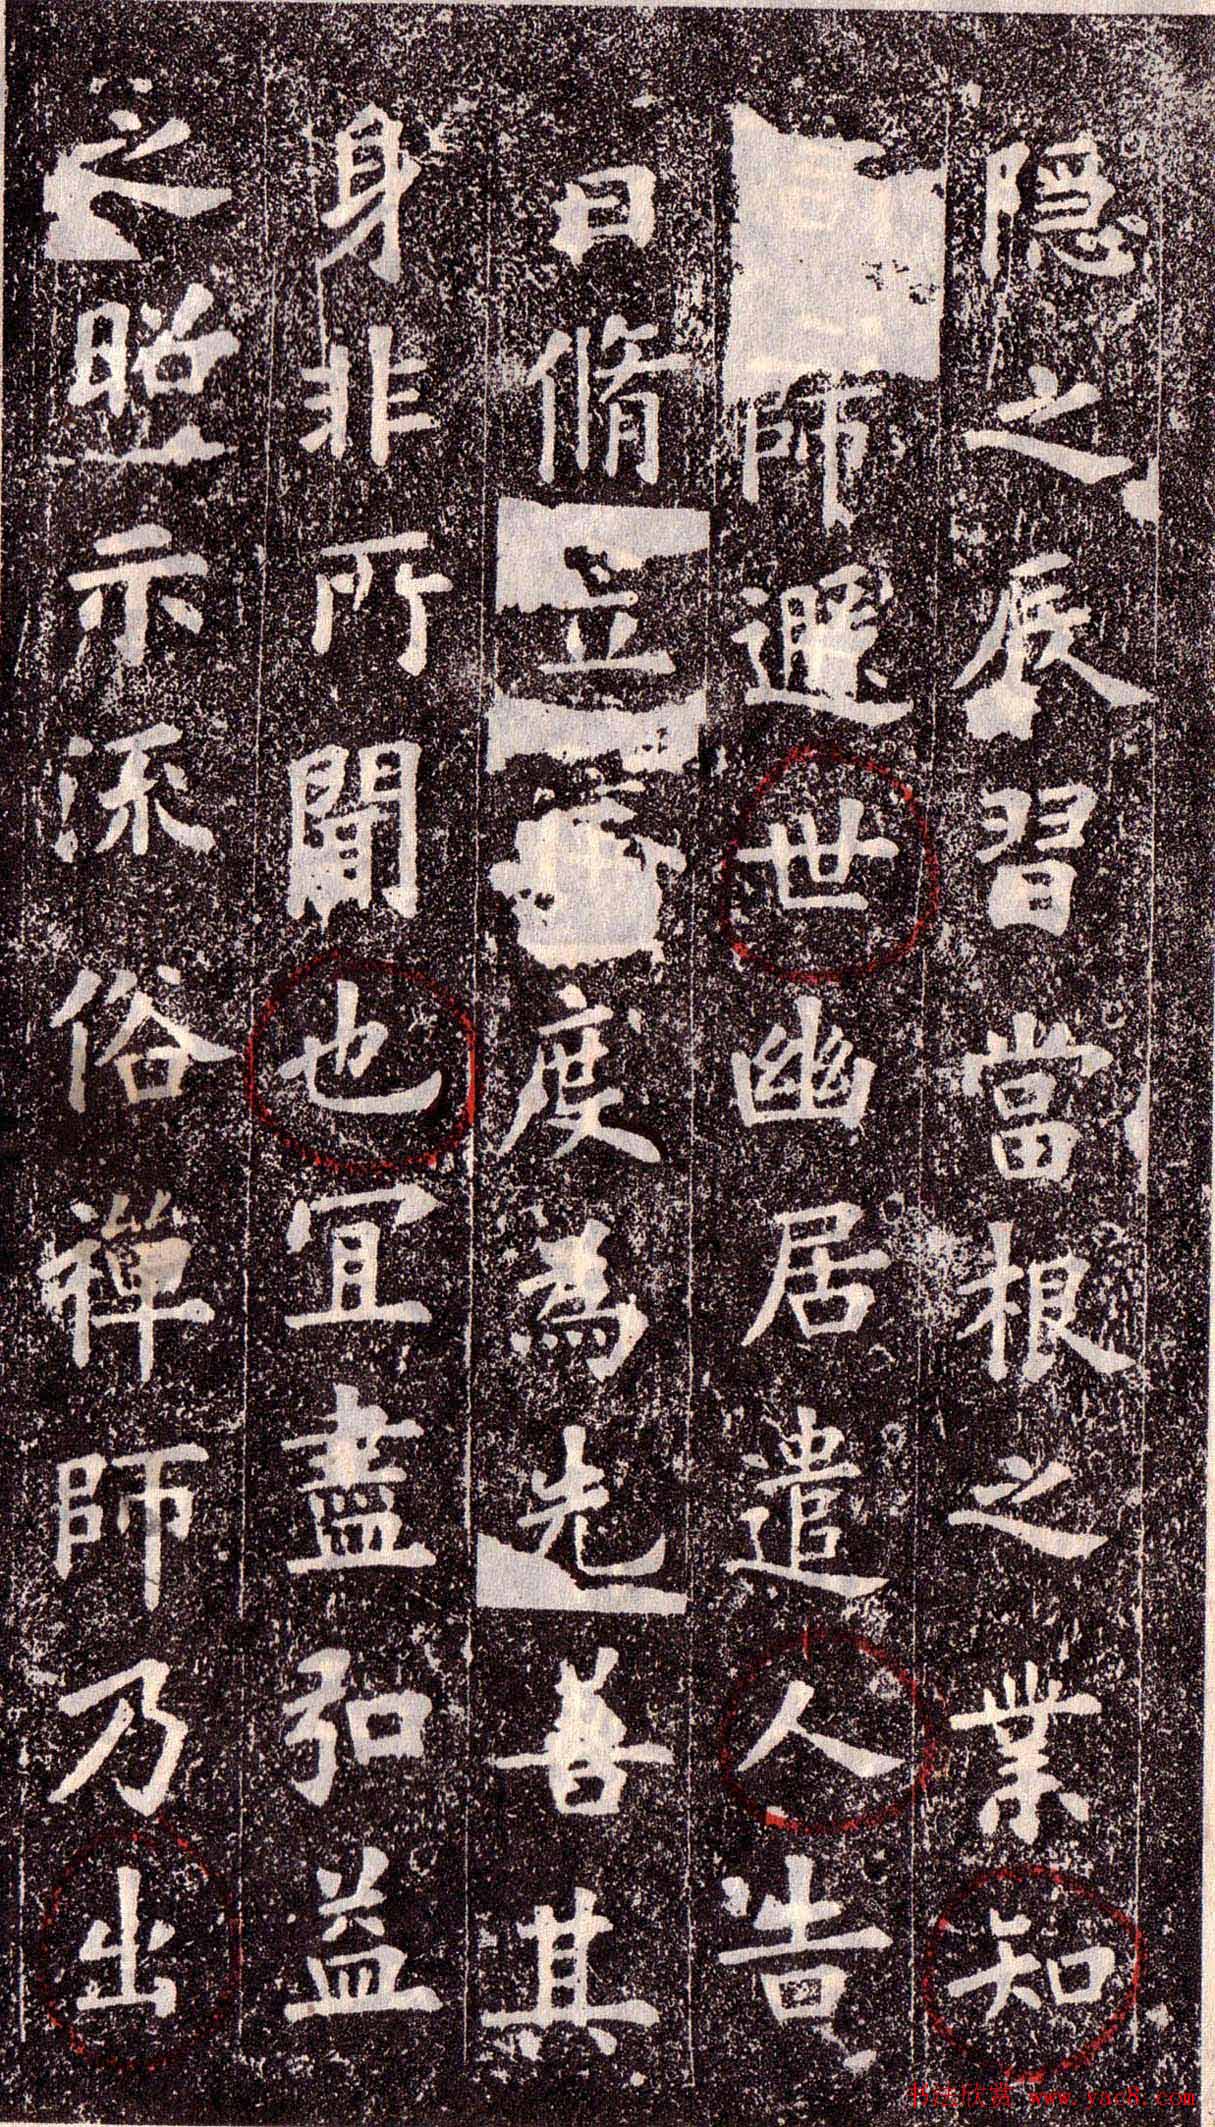 隱之辰習當根之業知
師遲世幽居遣人告
曰脩立度為先善其
身非所聞也宜盡弘益
之照示流俗禪師乃出
书法欣赏 www.yac8.com